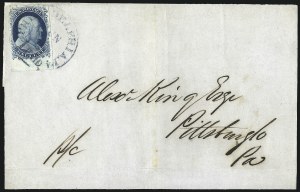 Alexr King Esqr
Pittsburgh
p/c
Pa